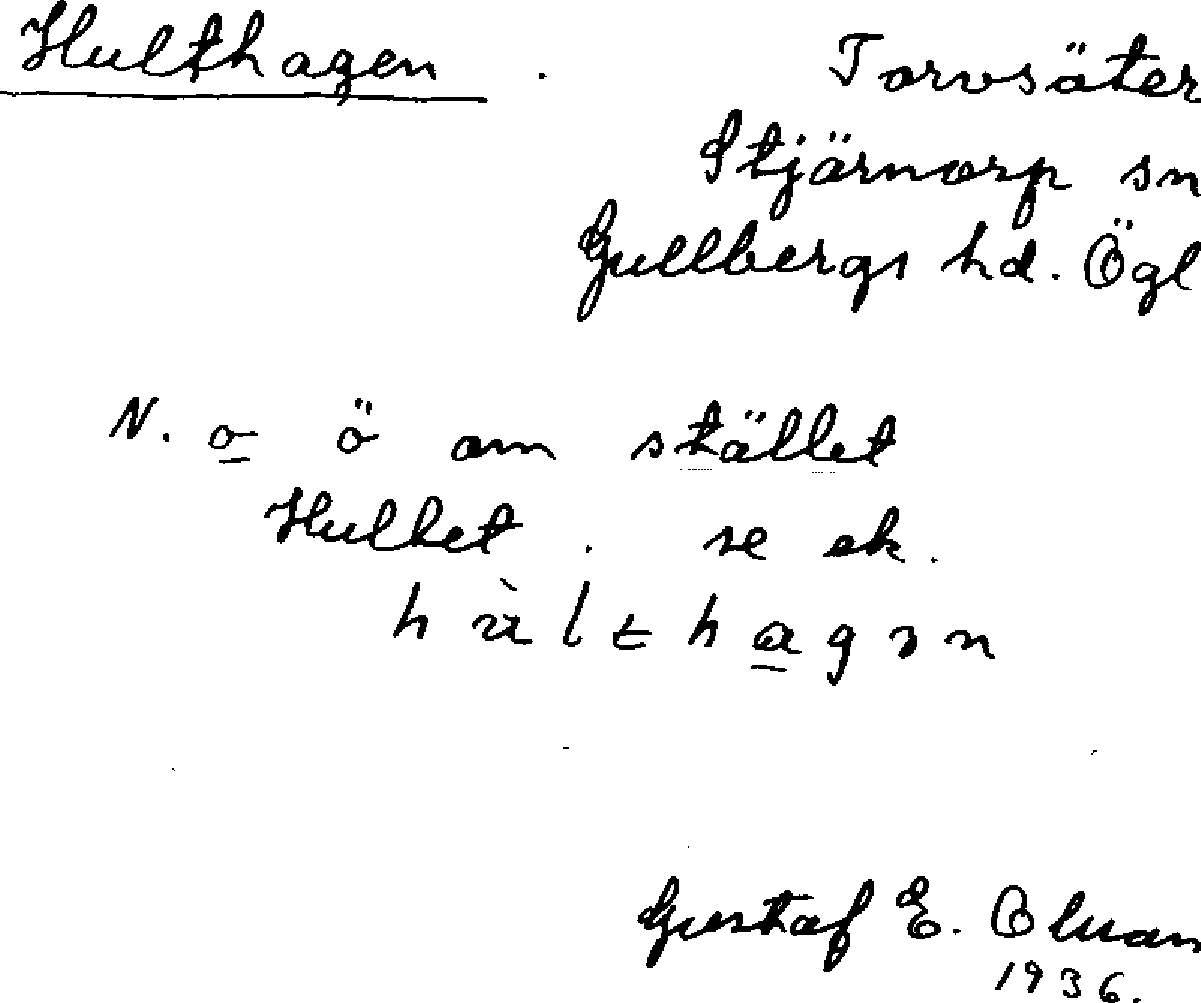 Hulthagen.
Torvsäter
Stjärnorp sn
Gullbergs hd. Ögl
N. o ö om stället
Hultet. se ek.
Gustaf E. Olsson
1936.